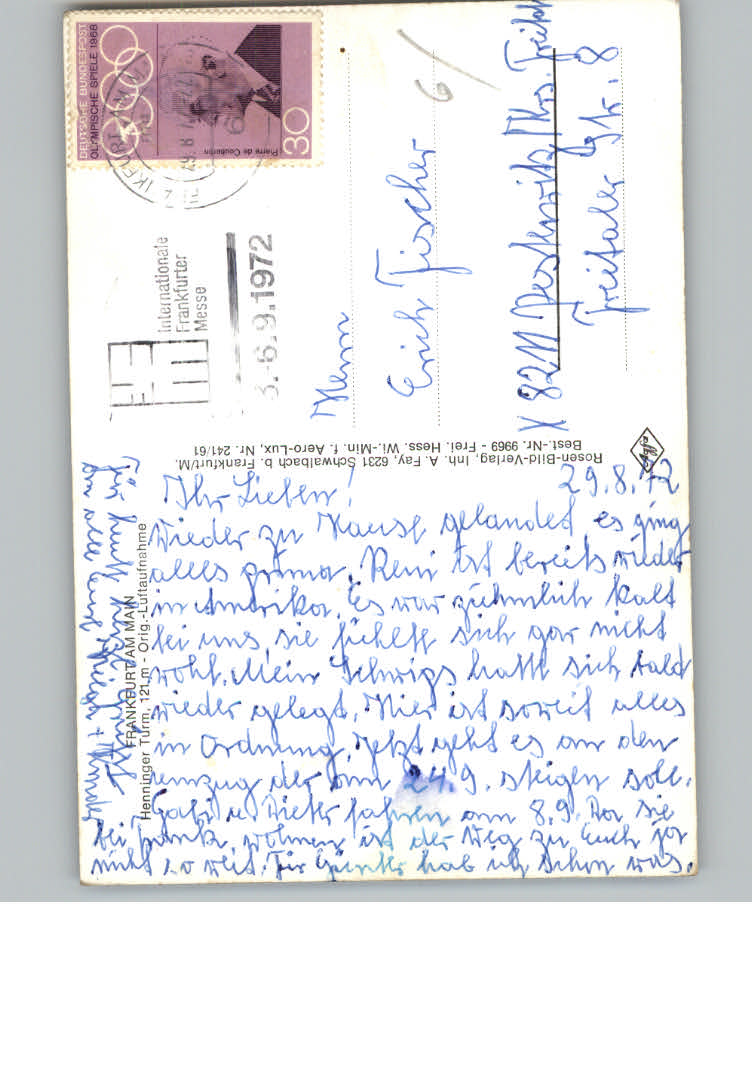 DEUTSCHE BUNDESPOST
OLYMPISCHE SPIELE 1968
Pierre de Coubertin
30
Internationale
Frankfurter
Messe
3.-6.9.1972
6/
Herrn
Erich Fischer
X 8211 Pesterwitz/Krs. Freital
Freitaler Str. 8
Rosen-Bild-Verlag, Inh. A. Fay, 6231 Schwalbach b. Frankfurt/M.
Best.-Nr. 9969 - Frei. Hess. Wi.-Min. f. Aero-Lux, Nr. 241/61
Agfa
FRANKFURT AM MAIN
Henninger Turm, 121 m - Orig.-Luftaufnahme
29.8.72
Ihr Lieben!
wieder zu Hause gelandet es ging
alles prima. Reni ist bereits wieder
in Amerika. Es war ziehmlich kalt
bei uns, sie fühlte sich gar nicht
wohl. Mein hatte sich bald
wieder gelegt. Hier ist soweit alles
in Ordnung. Jetzt geht es an den
umzug der am 24.9. steigen soll.
Gabi u. Dieter fahren am 8.9. Da sie
bei wohnen ist der Weg zu Euch ja
nicht so weit. Für Günter hab ich schon was.
Für heute seid